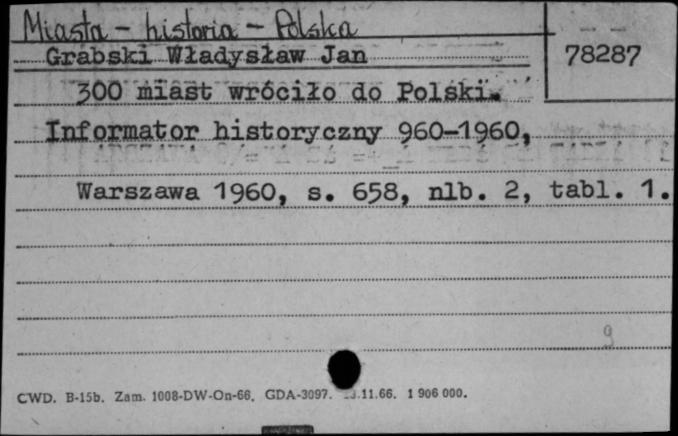 Miasta - historia - Polska
Grabski Władysław Jan
78287
300 miast wróciło do Polski.
Informator historyczny 960-1960,
Warszawa 1960, s. 658, nlb. 2, tabl. 1.
9
CWD. B-15b. Zam. 1008-DW-On-66. GDA-3097. .11.66. 1 906 000.